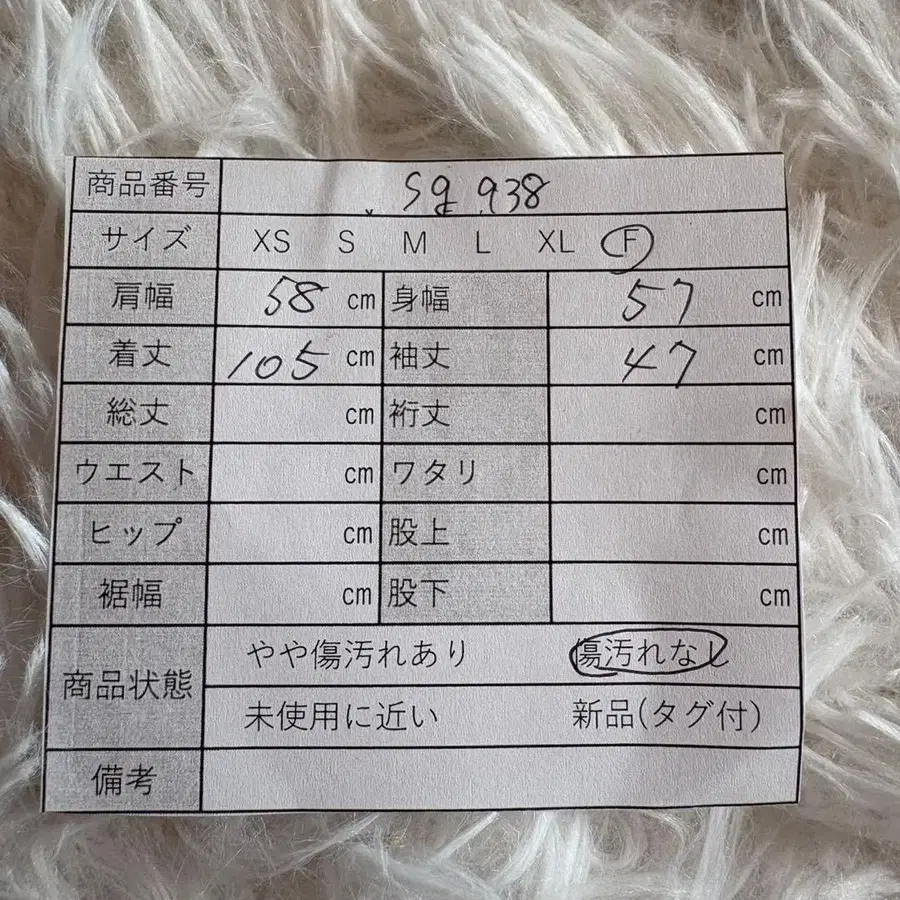 商品番号 sg 938
サイズ XS S M L XL F
肩幅 58 cm 身幅 57 cm
着丈 105 cm 袖丈 47 cm
総丈 cm 裄丈 cm
ウエスト cm ワタリ cm
ヒップ cm 股上 cm
裾幅 cm 股下 cm
商品状態 やや傷汚れあり 傷汚れなし
未使用に近い 新品(タグ付)
備考